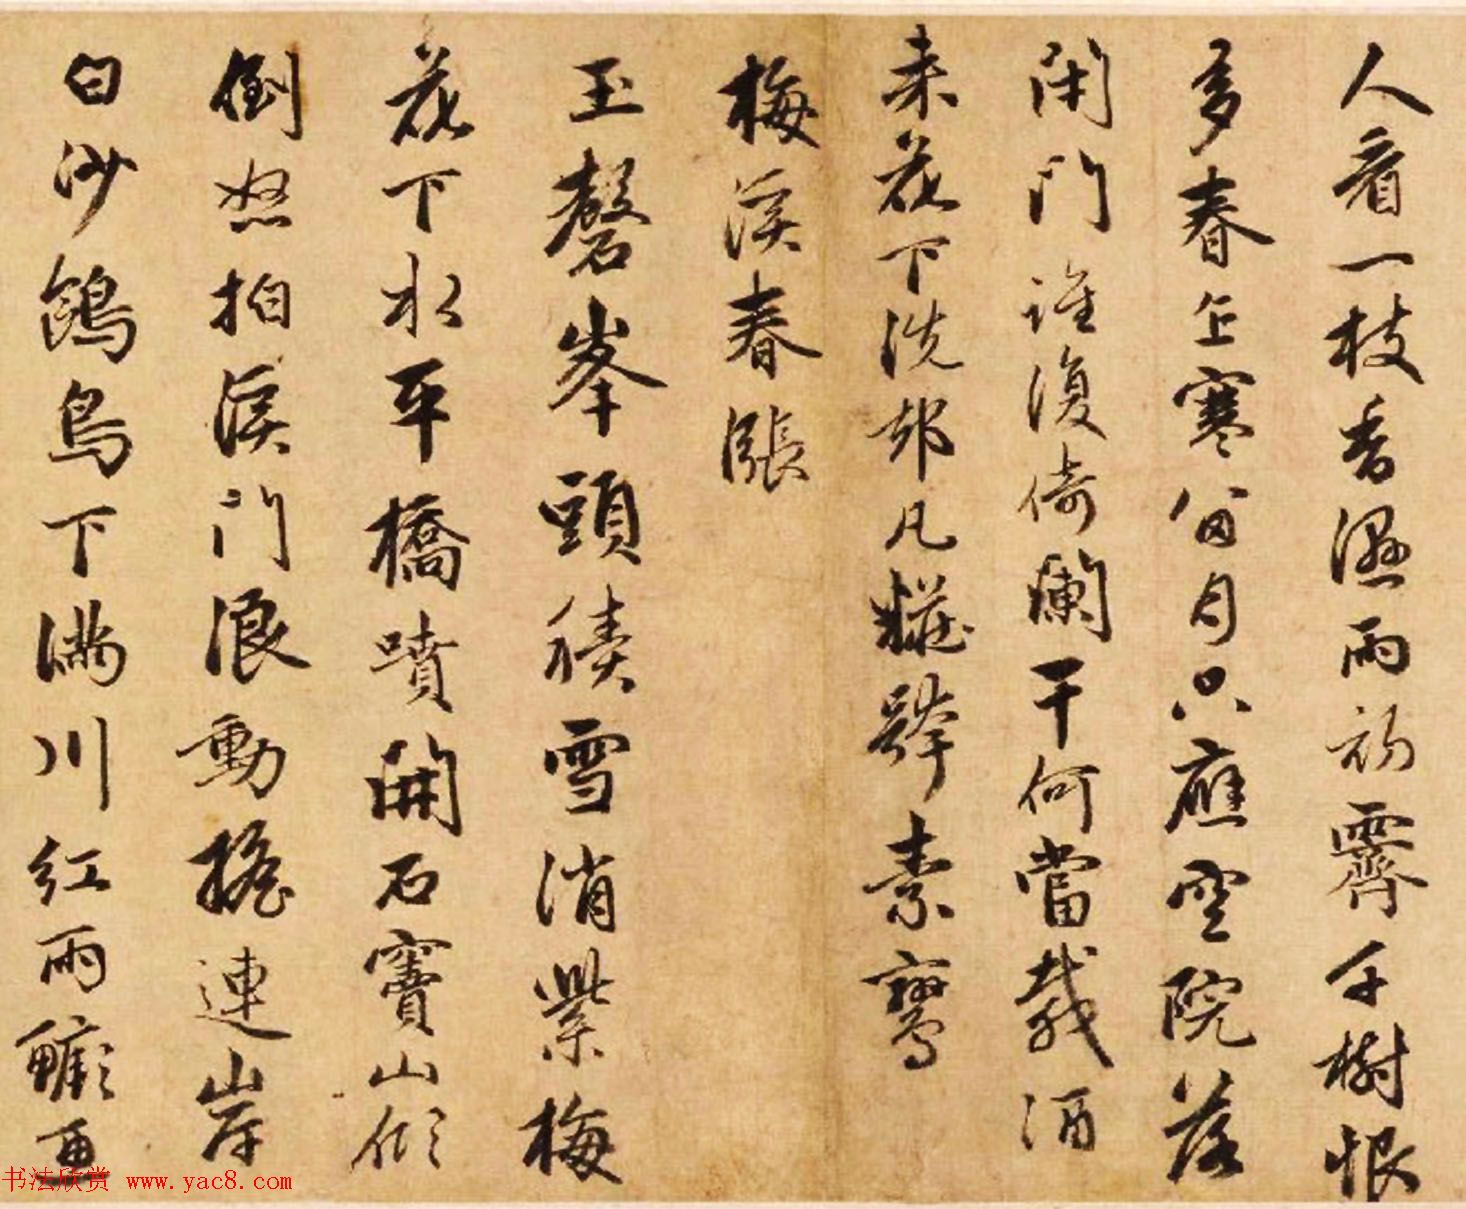 人看一枝香濕雨初霽千樹恨
多春上寒留月只應空院落
閉門誰復倚闌干何當載酒
来花下洗却凡糚跨素鸞
梅溪春漲
玉磬峯頭積雪消紫梅
花下水平橋噴開石竇山傾
倒怒拍溪門浪動搖連岸
白沙鷗鳥下滿川紅雨鱖魚
书法欣赏 www.yac8.com